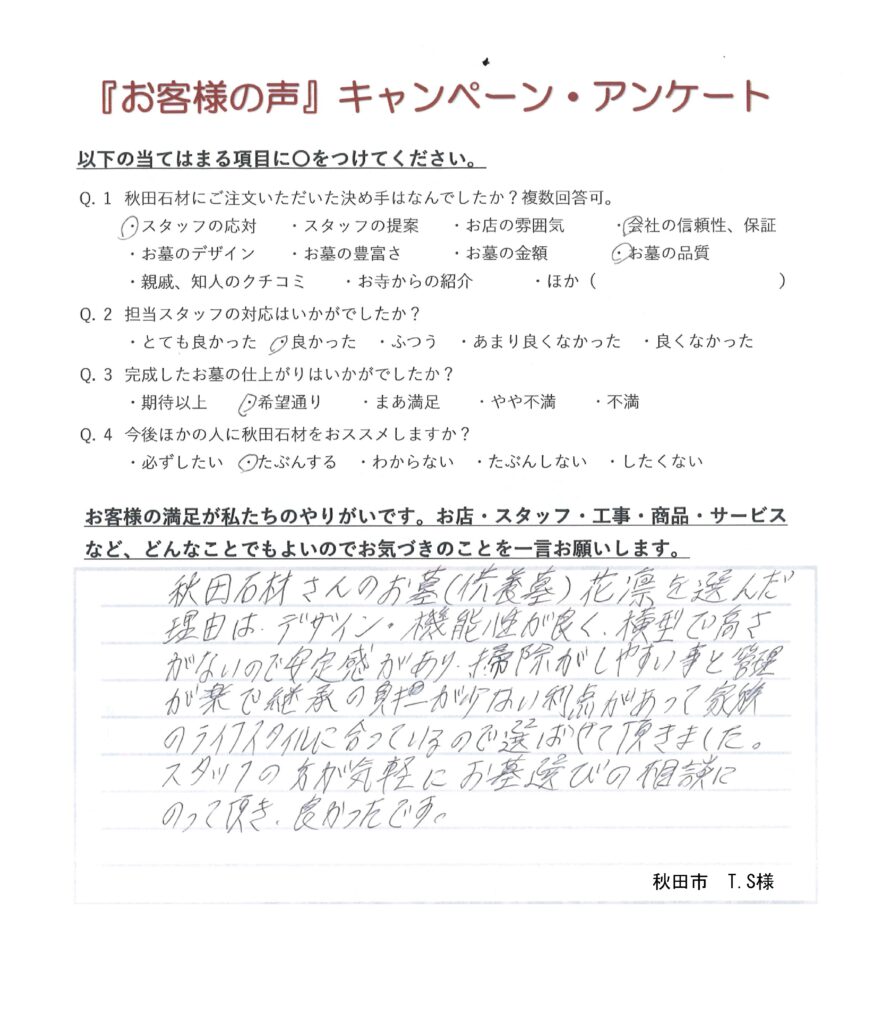 『お客様の声』キャンペーン・アンケート
以下の当てはまる項目に〇をつけてください。
Q. 1 秋田石材にご注文いただいた決め手はなんでしたか？複数回答可。
・スタッフの応対 ・スタッフの提案 ・お店の雰囲気 ・会社の信頼性、保証
・お墓のデザイン ・お墓の豊富さ ・お墓の金額 ・お墓の品質
・親戚、知人のクチコミ ・お寺からの紹介 ・ほか（ ）
Q. 2 担当スタッフの対応はいかがでしたか？
・とても良かった ・良かった ・ふつう ・あまり良くなかった ・良くなかった
Q. 3 完成したお墓の仕上がりはいかがでしたか？
・期待以上 ・希望通り ・まあ満足 ・やや不満 ・不満
Q. 4 今後ほかの人に秋田石材をおススメしますか？
・必ずしたい ・たぶんする ・わからない ・たぶんしない ・したくない
お客様の満足が私たちのやりがいです。お店・スタッフ・工事・商品・サービス
など、どんなことでもよいのでお気づきのことを一言お願いします。
秋田石材さんのお墓(供養墓)花凛を選んだ
理由は、デザイン・機能性が良く、横型で高さ
がないので安定感があり、掃除がしやすい事と管理
が楽で継承の負担が少ない利点があって家族
のライフスタイルに合っているので選ばせて頂きました。
スタッフの方が気軽にお墓選びの相談に
のって頂き、良かったです。
秋田市 T.S様